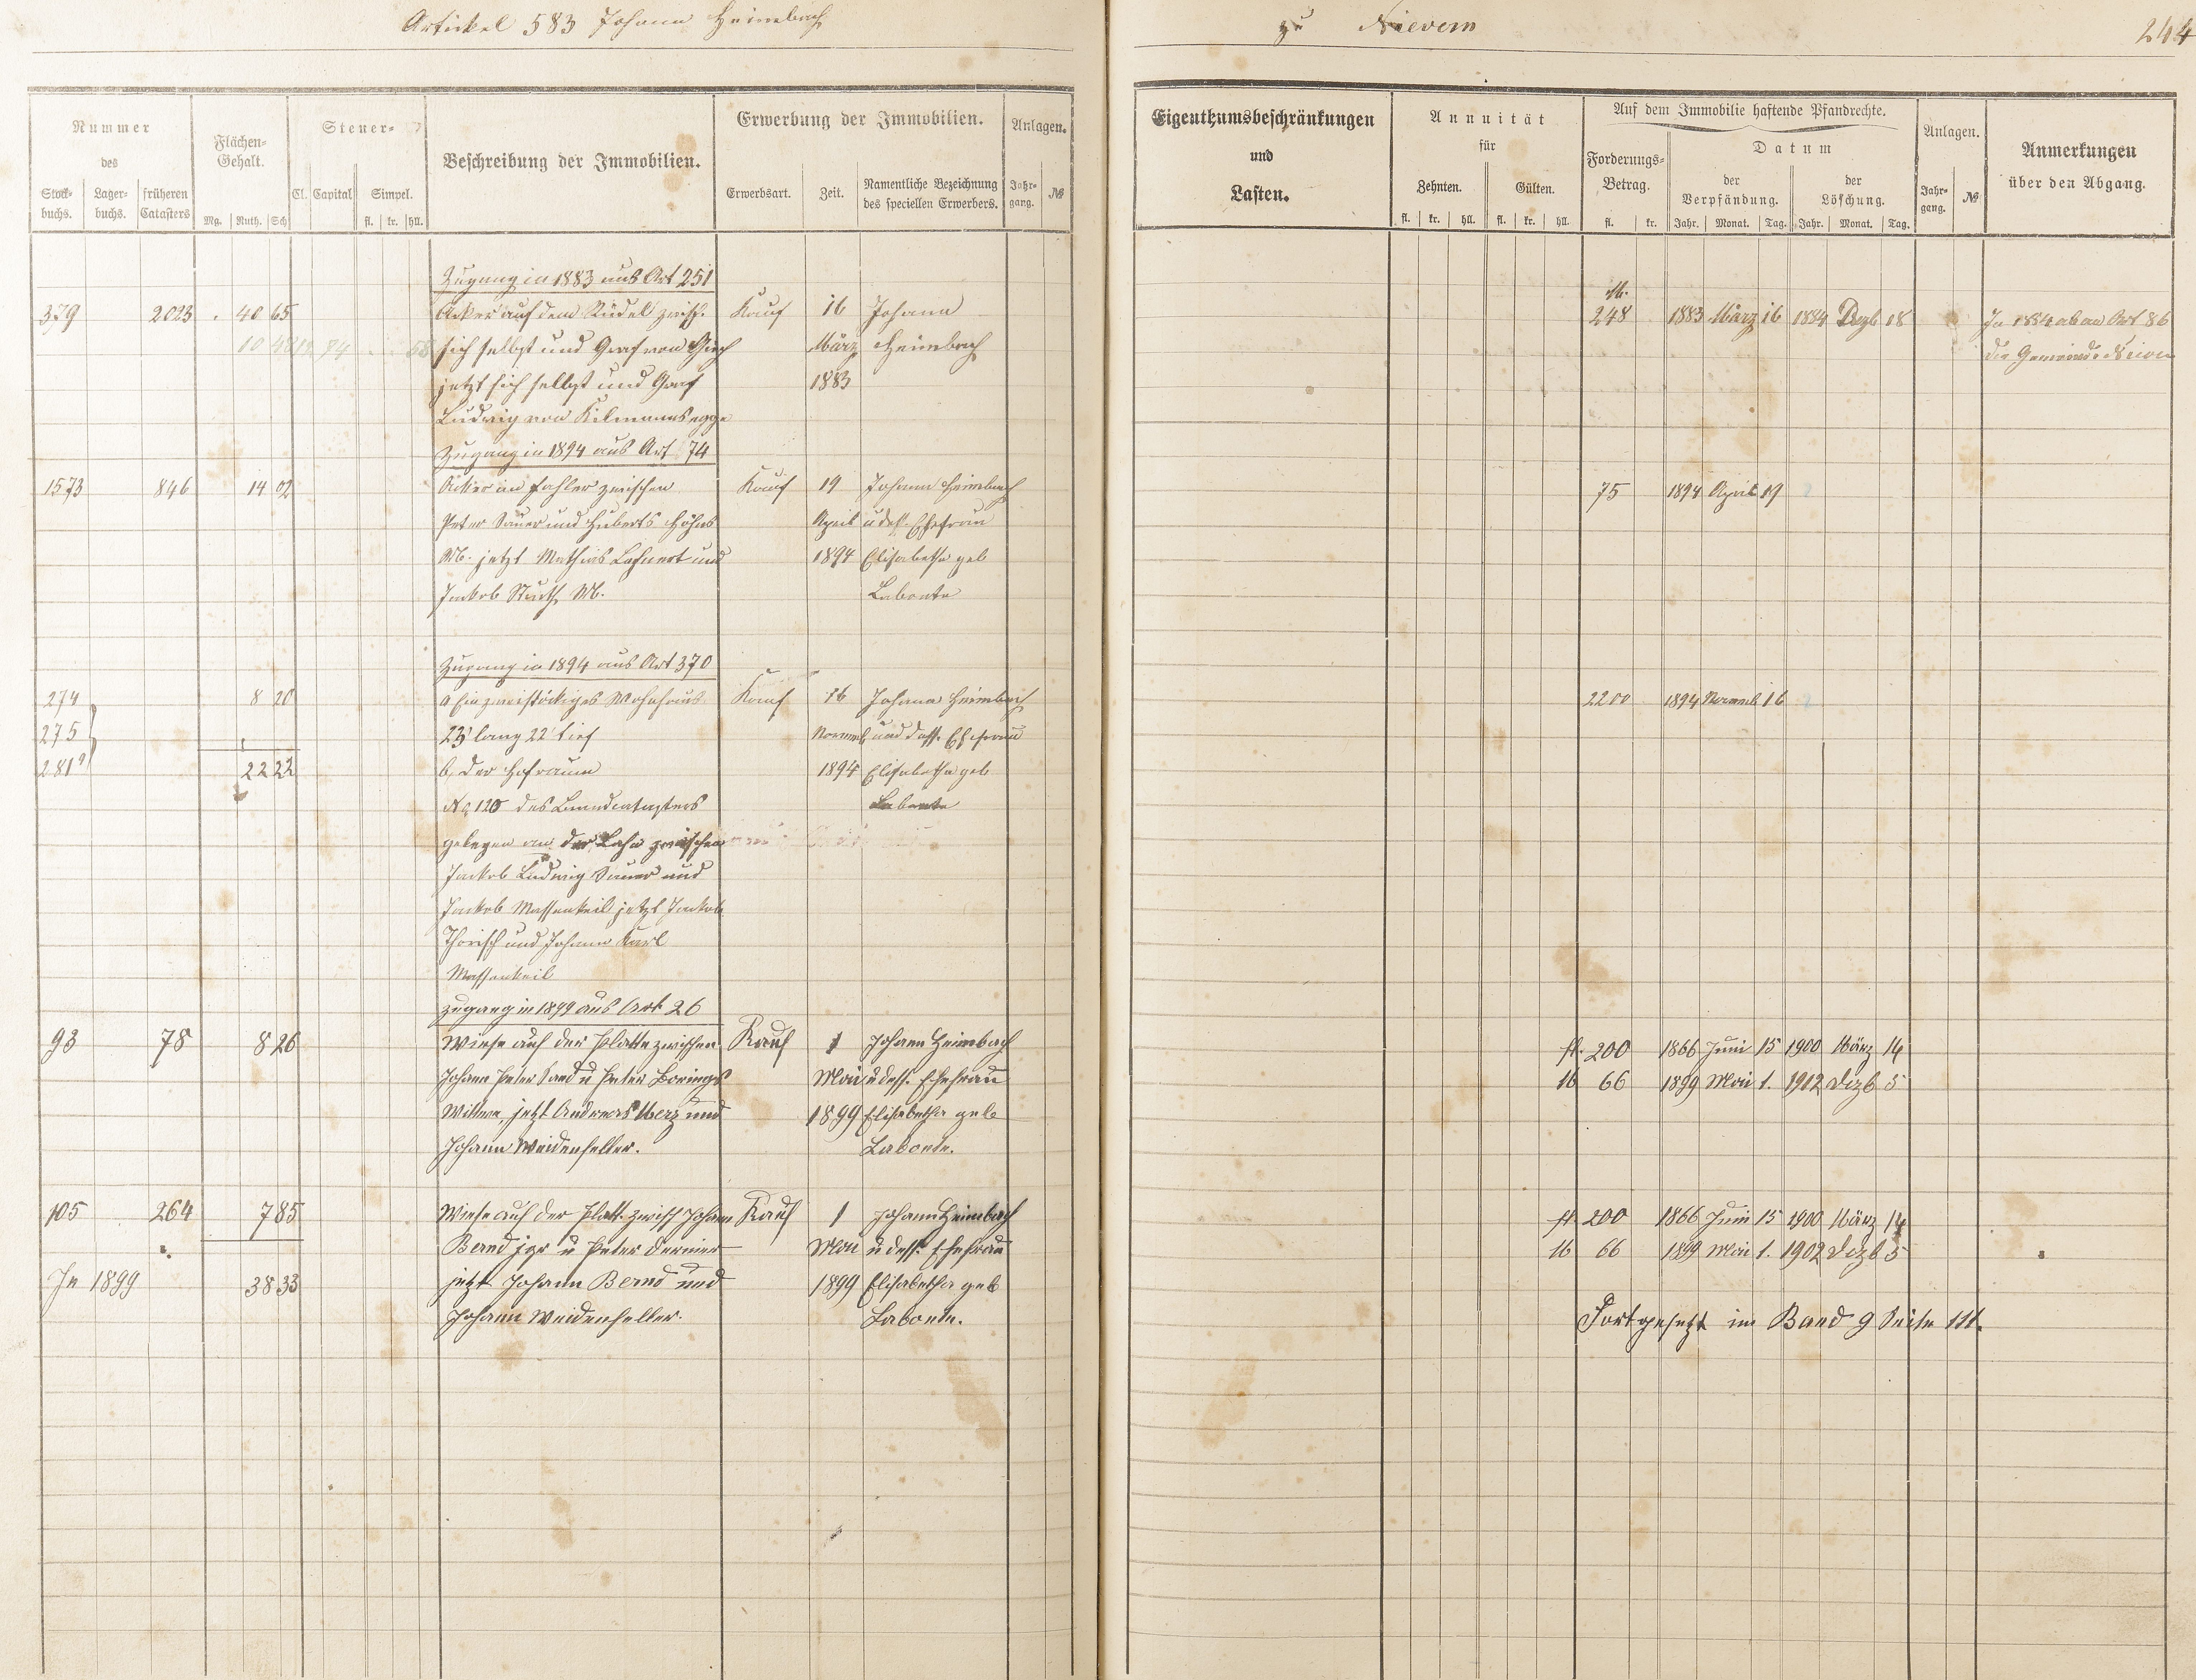 Artickel 583 Johann Heimbach
zu Nievern
244
Nummer
des
Stock-
buchs.
Lager-
buchs.
früheren
Catasters
Flächen-
Gehalt.
Mg. Ruth. Sch
Steuer-
Cl. Capital Simpel.
fl. kr. hll.
Beschreibung der Immobilien.
Erwerbung der Immobilien.
Erwerbsart. Zeit.
Namentliche Bezeichnung
des speciellen Erwerbers.
Anlagen.
Jahr-
gang.
№
Eigenthumsbeschränkungen
und
Lasten.
Annuität
für
Zehnten. Gülten.
fl. kr. hll. fl. kr. hll.
Auf dem Immobilie haftende Pfandrechte.
Forderungs-
Betrag.
fl. kr.
Datum
der
Verpfändung.
Jahr. Monat. Tag.
der
Löschung.
Jahr. Monat. Tag.
Anlagen.
Jahr-
gang.
№
Anmerkungen
über den Abgang.
Zugang in 1883 aus Art 251
M.
379 2023 40 65 Acker auf dem zwisch. Kauf 16 Johann 248 1883 März 16 1884 Dezb 18 In 1884 ab an Art 86
sich selbst und Graf von Giech März Heimbach die Gemeinde
jetzt sich selbst und Graf 1883
Ludwig von Kilmannsegge
Zugang in 1894 aus Art 74
1573 846 14 02 Acker im Fahler zwischen Kauf 19 Johann Heimbach 75 1894 April 19
Peter Sauer und Huberts Höhns April u dess. Ehefrau
W. jetzt Mathias Lehnert und 1894 Elisabetha geb
Jakob W. Labonte
Zugang in 1894 aus Art 370
274 8 20 a Ein zweistöckiges Wohnhaus Kauf 16 Johann Heimbach 2200 1894 Novemb 16
275 23' lang 22' tief Novemb und dess. Ehefrau
281 22 22 b, der Hofraum 1894 Elisabetha geb
No 120 des Brandcatasters Labonte
gelegen an der Lahn zwischen
Jakob Ludwig Sauer und
Jakob Massenkeil jetzt Jakob
Thorisch und Johann Karl
Massenkeil
Zugang in 1899 aus Art 26
93 78 8 26 Wiese auf der Platte zwischen Kauf 1 Johann Heimbach fl. 200 1866 Juni 15 1900 März 14
Johann Peter Sand u Peter Borings Mai u dess. Ehefrau 66 1899 Mai 1. 1912 Dezb 5
Wittwe, jetzt Andreas Merz und 1899 Elisabetha geb
Johann Weidenfeller. Labonte.
105 264 7 85 Wiese auf der Platte zwisch Johann Kauf 1 Johann Heimbach fl 200 1866 Juni 15 1900 März 14
Bernd jgr u Peter Dernier Mai u dess. Ehefrau 66 1899 Mai 1. 1902 Dezb 5
In 1899 38 33 jetzt Johann Bernd und 1899 Elisabetha geb
Johann Weidenfeller. Labonte.
Fortgesetzt im Band 9 Seite 111.